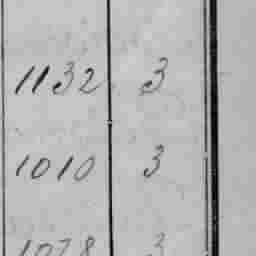 1132 3
1010 3
1078 3